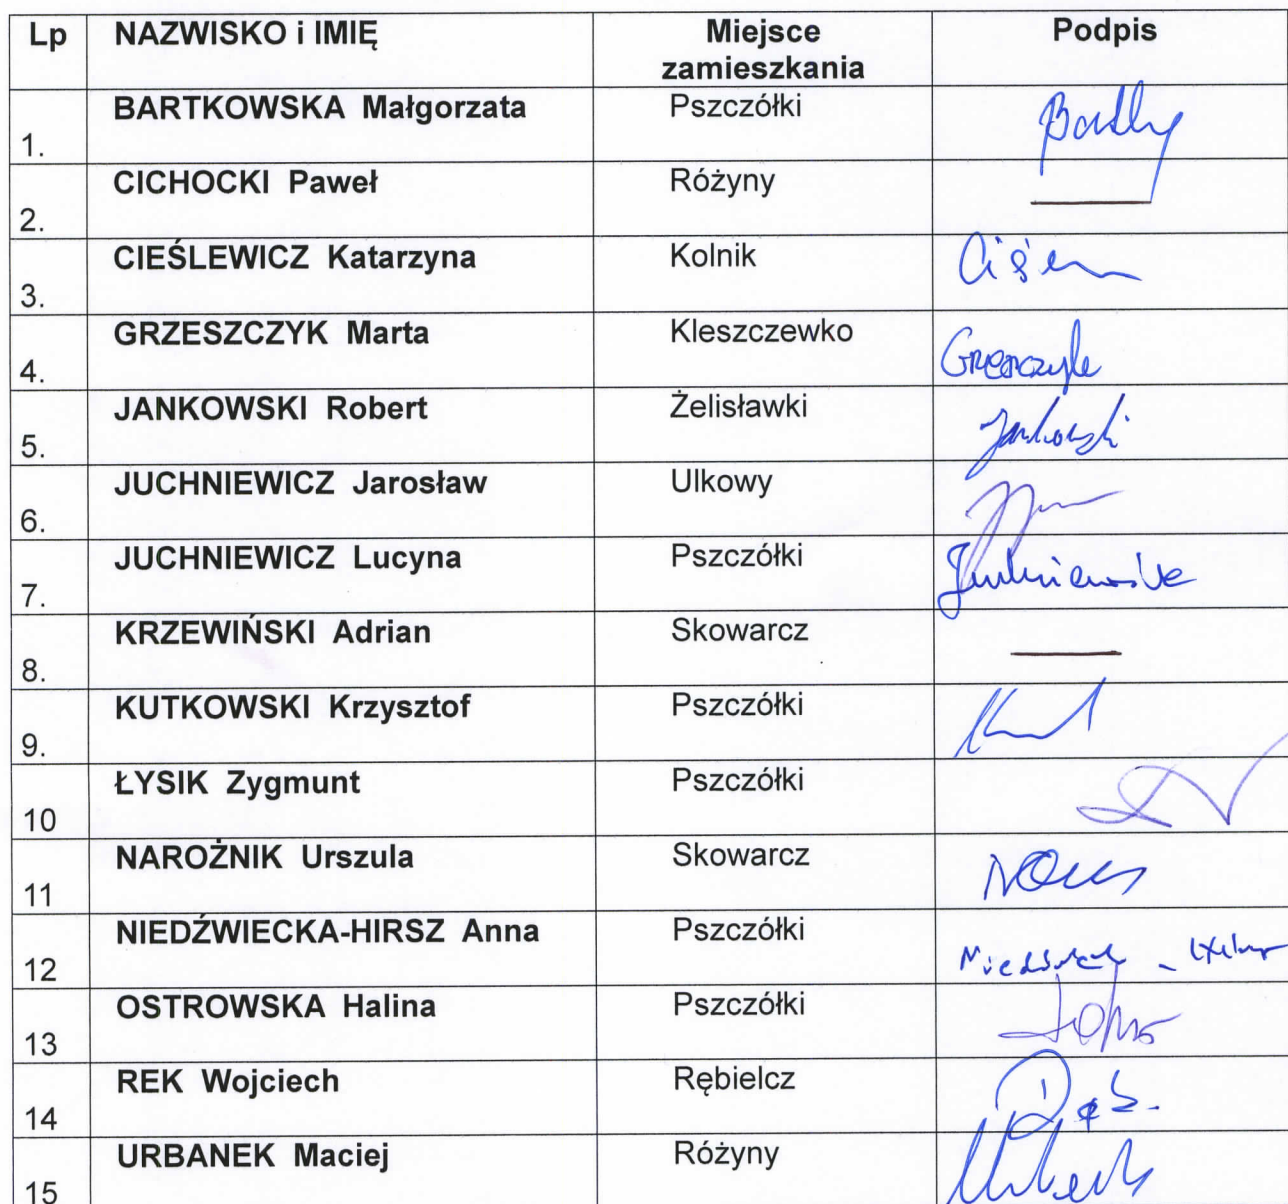 Lp NAZWISKO i IMIĘ Miejsce zamieszkania Podpis
1. BARTKOWSKA Małgorzata Pszczółki
2. CICHOCKI Paweł Różyny
3. CIEŚLEWICZ Katarzyna Kolnik
4. GRZESZCZYK Marta Kleszczewko
5. JANKOWSKI Robert Żelisławki Jankowski
6. JUCHNIEWICZ Jarosław Ulkowy
7. JUCHNIEWICZ Lucyna Pszczółki
8. KRZEWIŃSKI Adrian Skowarcz
9. KUTKOWSKI Krzysztof Pszczółki
10 ŁYSIK Zygmunt Pszczółki
11 NAROŻNIK Urszula Skowarcz
12 NIEDŹWIECKA-HIRSZ Anna Pszczółki
13 OSTROWSKA Halina Pszczółki
14 REK Wojciech Rębielcz
15 URBANEK Maciej Różyny